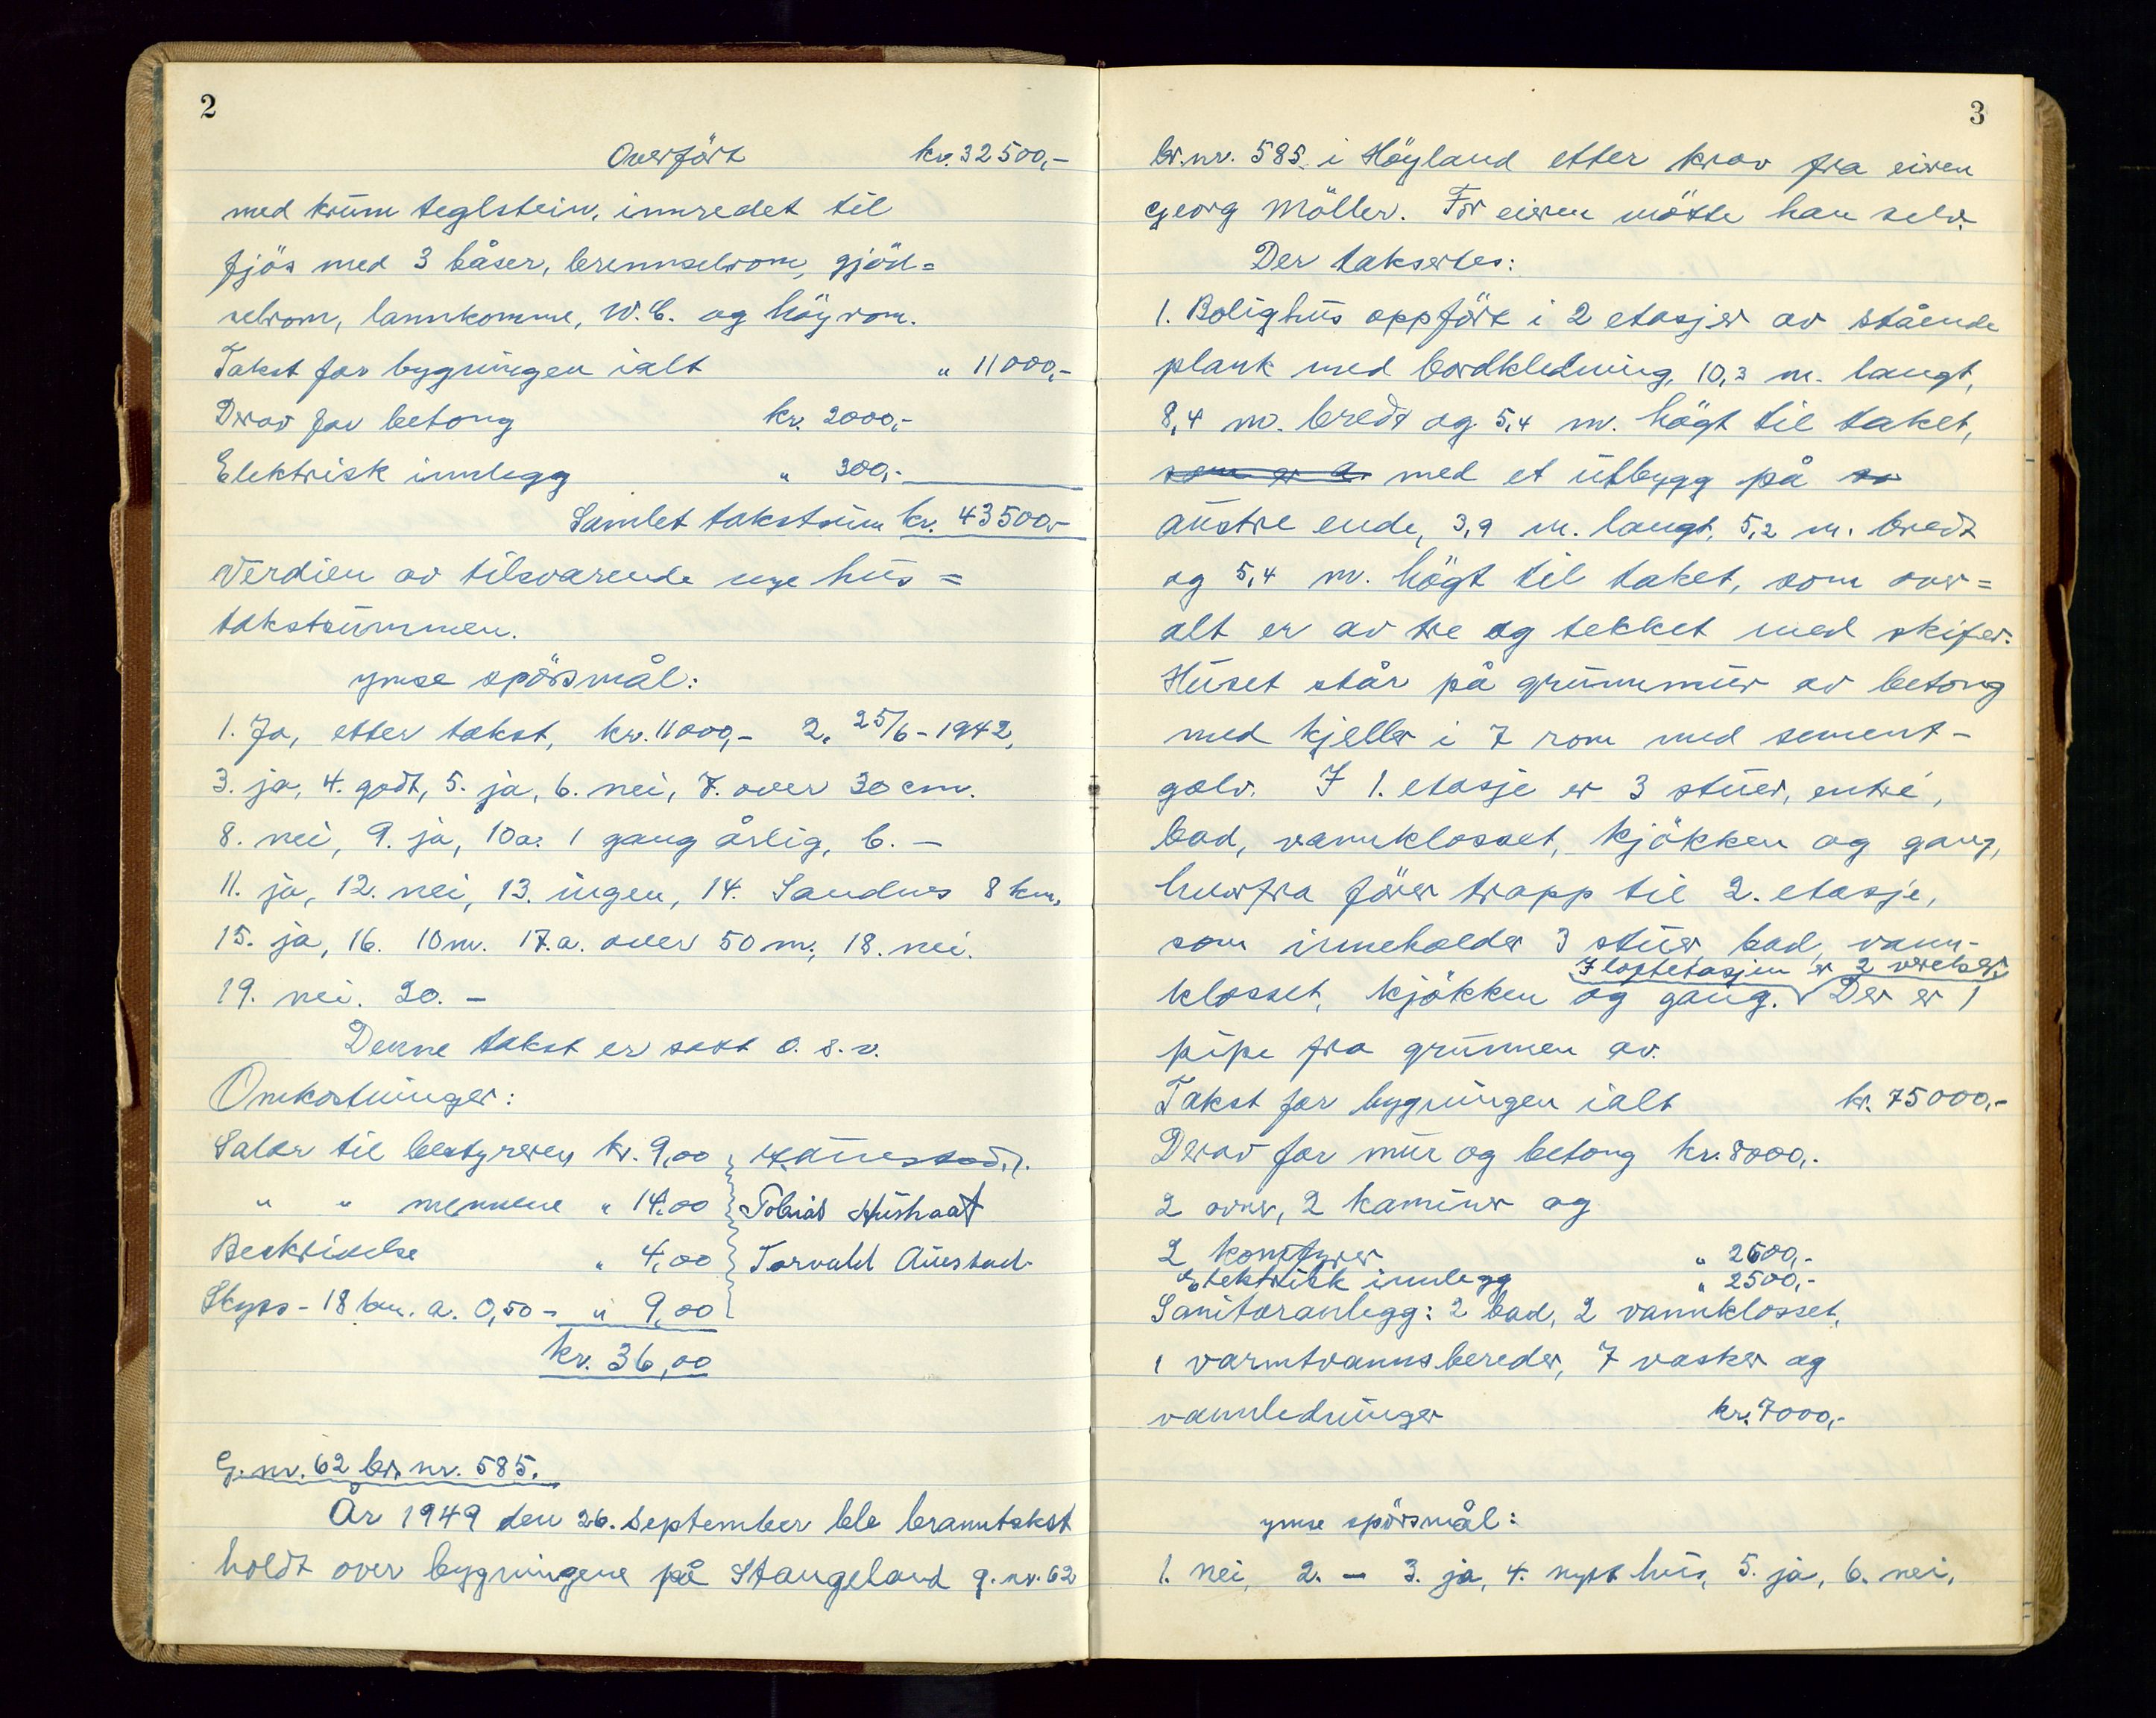 2
Overfört kr. 32500,-
med krum teglstein, innredet til
fjös med 3 båser, brennselrom, gjöd=
selrom, lannkomme, W.C. og höyrom.
Takst for bygningen ialt " 11000,-
Derav for betong kr. 2000,-
Elektrisk innlegg " 300,-
Samlet takstsum kr. 43500,-
Verdien av tilsvarende nye hus =
takstsummen.
ymse spörsmål:
1. Ja, etter takst, kr. 11000,- 2. 25/6-1942,
3. ja, 4. godt, 5. ja, 6. nei, 7. over 30 cm.
8. nei, 9. ja, 10a. 1 gang årlig, b. —
11. ja, 12. nei, 13. ingen, 14. Sandnes 8 km,
15. ja, 16. 10 m. 17.a. over 50 m; 18. nei.
19. nei. 20. —
Denne takst er satt o. s. v.
Omkostninger:
Salær til bestyreren kr. 9,00
" " mennene " 14,00 Tobias Hushaat
Beskrivelse " 4,00 Torvald Austad.
Skyss - 18 km. a. 0,50 - " 9,00
kr. 36,00
G. nr. 62 br. nr. 585.
År 1949 den 26. september ble branntakst
holdt over bygningene på Stangeland g. nr. 62
3
br. nr. 585 i Höyland etter krav fra eieren
Georg Möller. For eieren mötte han selv.
Der taksertes:
1. Bolighus oppfört i 2 etasjer av stående
plank med bordkledning, 10,3 m. langt,
8,4 m. bredt og 5,4 m. högt til taket,
som er a med et utbygg på
austre ende, 3,9 m. langt, 5,2 m. bredt
og 5,4 m. högt til taket, som over=
alt er av tre og tekket med skifer.
Huset står på grunnmur av betong
med kjeller i 7 rom med sement-
golv. I 1. etasje er 3 stuer, entré,
bad, vannklosset, kjökken og gang,
hvorfra förer trapp til 2. etasje,
som inneholder 3 stuer, bad, vann-
I loftetasjen er 2 værelser.
klosset, kjökken og gang. Der er 1
pipe fra grunnen av.
Takst for bygningen ialt kr. 75000,-
Derav for mur og betong kr. 8000,-
2 ovner, 2 kaminer og
2 komfyrer " 2600,-
Elektrisk innlegg " 2500,-
Sanitæranlegg: 2 bad, 2 vannklosset,
1 varmtvannsbereder, 7 vasker og
vannledninger kr. 7000,-
ymse spörsmål:
1. nei, 2. — 3. ja, 4. nytt hus, 5. ja, 6. nei,